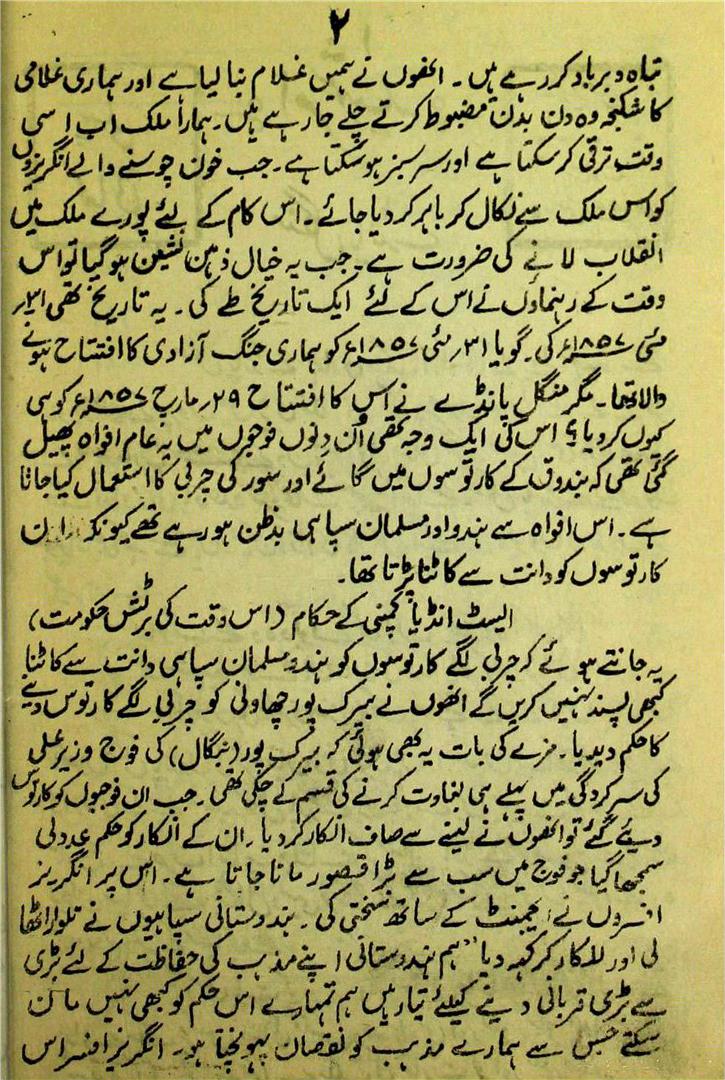 ۲
تباہ و برباد کر رہے ہیں۔ انھوں نے ہمیں غلام بنا لیا ہے اور ہماری غلامی
کا شکنجہ وہ دن بدن مضبوط کرتے چلے جا رہے ہیں۔ ہمارا ملک اب اسی
وقت ترقی کر سکتا ہے اور سرسبز ہو سکتا ہے۔ جب خون چوسنے والے انگریزوں
کو اس ملک سے نکال کر باہر کر دیا جائے۔ اس کام کے لئے پورے ملک میں
انقلاب لانے کی ضرورت ہے۔ جب یہ خیال ذہن نشین ہو گیا تو اس
وقت کے رہنماؤں نے اس کے لئے ایک تاریخ طے کی۔ یہ تاریخ تھی ۳۱؍
مئی ۱۸۵۷ء کی۔ گویا ۳۱؍ مئی ۱۸۵۷ء کو ہماری جنگ آزادی کا افتتاح ہونے
والا تھا۔ مگر منگل پانڈے نے اس کا افتتاح ۲۹؍ مارچ ۱۸۵۷ء کو ہی
کیوں کر دیا؟ اس کی ایک وجہ تھی اُن دنوں فوجوں میں یہ عام افواہ پھیل
گئی تھی کہ بندوق کے کارتوسوں میں گائے اور سور کی چربی کا استعمال کیا جاتا
ہے۔ اس افواہ سے ہندو اور مسلمان سپاہی بدظن ہو رہے تھے کیونکہ ان
کارتوسوں کو دانت سے کاٹنا پڑتا تھا۔
ایسٹ انڈیا کمپنی کے حکام (اس وقت کی برٹش حکومت)
یہ جانتے ہوئے کہ چربی لگے کارتوسوں کو ہندو مسلمان سپاہی دانت سے کاٹنا
کبھی پسند نہیں کریں گے انھوں نے بیرک پور چھاونی کو چربی لگے کارتوس دینے
کا حکم دیدیا۔ مزے کی بات یہ بھی ہوئی کہ بیرک پور (بنگال) کی فوج وزیر علی
کی سرکردگی میں پہلے ہی بغاوت کرنے کی قسم کھا چکی تھی۔ جب ان فوجیوں کو کارتوس
دیئے گئے تو انھوں نے لینے سے صاف انکار کر دیا۔ ان کے انکار کو حکم عدولی
سمجھا گیا جو فوج میں سب سے بڑا قصور مانا جاتا ہے۔ اس پر انگریز
افسروں نے رجمنٹ کے ساتھ سختی کی۔ ہندوستانی سپاہیوں نے تلوار اٹھا
لی اور للکار کر کہہ دیا "ہم ہندوستانی اپنے مذہب کی حفاظت کے لئے بڑی
سے بڑی قربانی دینے کیلئے تیار ہیں ہم تمہارے اس حکم کو کبھی نہیں مان
سکتے جس سے ہمارے مذہب کو نقصان پہونچتا ہو۔ انگریز افسر اس